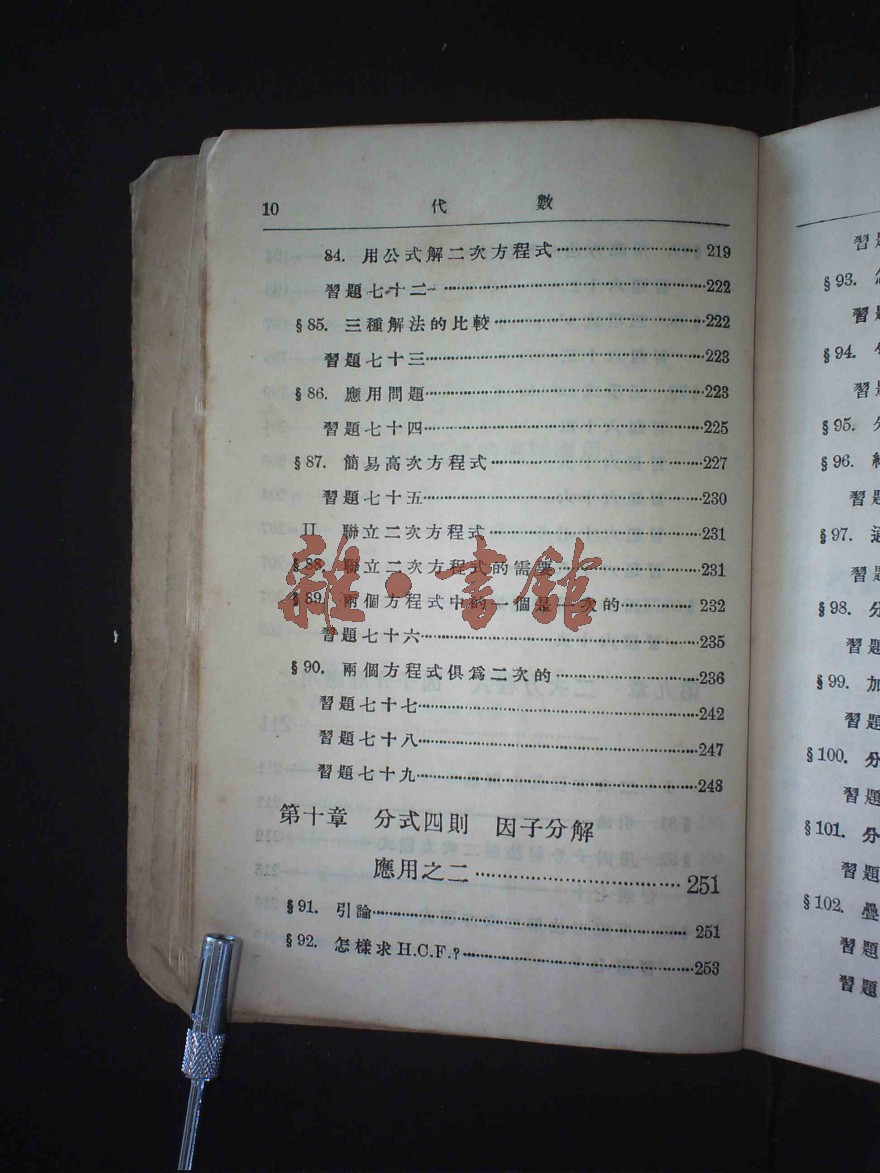 10 代 數
84. 用公式解二次方程式 219
習題七十二 222
§85. 三種解法的比較 222
習題七十三 223
§86. 應用問題 223
習題七十四 225
§87. 簡易高次方程式 227
習題七十五 230
II 聯立二次方程式 231
§88. 聯立二次方程式的需要 231
§89. 兩個方程式中的一個是一次的 232
習題七十六 235
§90. 兩個方程式俱爲二次的 236
習題七十七 242
習題七十八 247
習題七十九 248
第十章 分式四則 因子分解
應用之二 251
§91. 引論 251
§92. 怎樣求H.C.F.? 253
雜·書館
習
§93.
習
§94.
習
§95.
§96.
習題
§97.
習題
§98. 分
習題
§99. 加
習題
§100. 分
習題
§101. 分
習題
§102. 疊
習題
習題